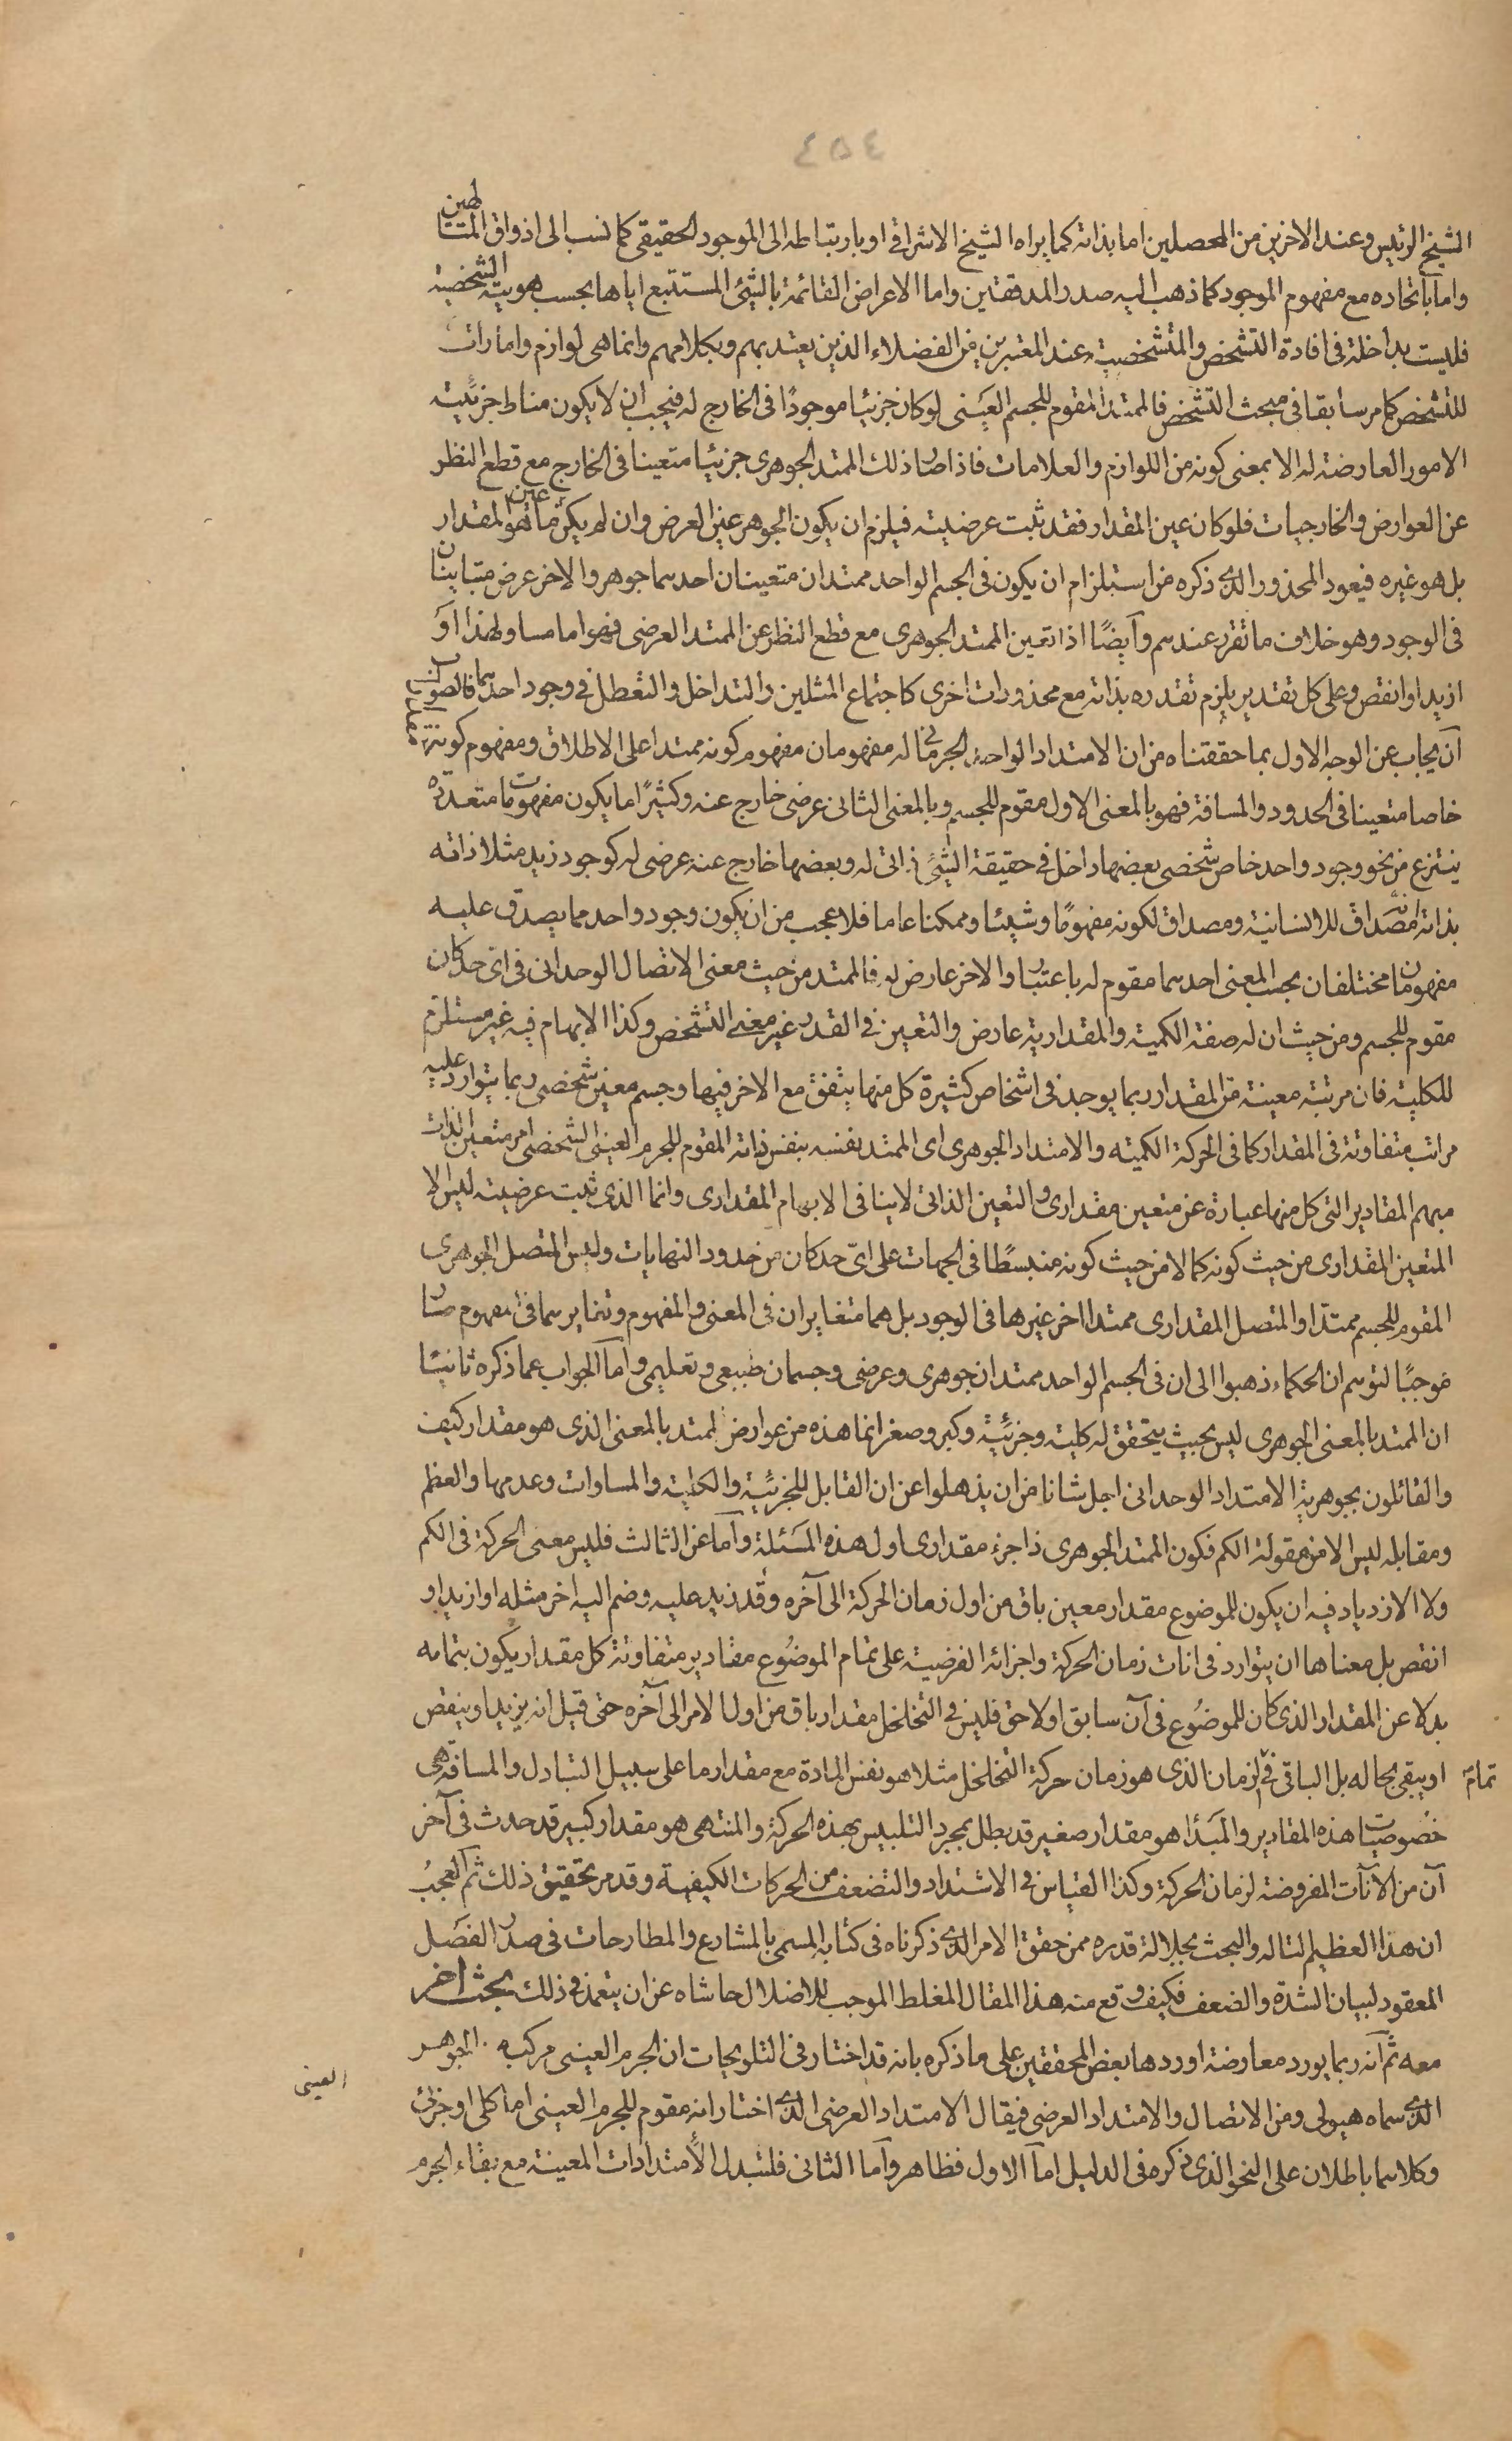 ٤٥٤
الشيخ الرئيس وعند الاخرين من المحصلين اما بذاته كما يراه الشيخ الاشراقى او بارتباطه الى الموجود الحقيقى كما نسب الى اذواق المتالهين
واما باتحاده مع مفهوم الموجود كما ذهب اليه صدر المدققين واما الاعراض القائمة بالشئ المستتبع اياها بحسب هويته الشخصية
فليست بداخلة فى افادة التشخص والمتشخصية عند المعتبرين من الفضلاء الذين يعتد بهم وبكلامهم وانما هى لوازم وامارات
للتشخص كما مر سابقا فى مبحث التشخص فالممتد المقوم للجسم العينى لو كان جزئيا موجودا فى الخارج له فيجب ان لا يكون مناط جزئيته
الامور العارضة له الا بمعنى كونه من اللوازم والعلامات فاذا صار ذلك الممتد الجوهرى جزئيا متعينا فى الخارج مع قطع النظر
عن العوارض والخارجيات فلو كان عين المقدار فقد ثبت عرضيته فيلزم ان يكون الجوهر عين العرض وان لم يكن ما هو عين المقدار
بل هو غيره فيعود المحذور الذى ذكره من استلزام ان يكون فى الجسم الواحد ممتدان متعينان احدهما جوهر والاخر عرض متباينان
فى الوجود وهو خلاف ما تقرر عندهم وايضًا اذا تعين الممتد الجوهرى مع قطع النظر عن الممتد العرضى فهو اما مساو لهذا او
ازيد او انقص وعلى كل تقدير يلزم تقدره بذاته مع محذورات اخرى كاجتماع المثلين والتداخل والتعطل فى وجود احدهما فالصواب
ان يجاب عن الوجه الاول بما حققناه من ان الامتداد الواحد الجرمانى له مفهومان مفهوم كونه ممتدا على الاطلاق ومفهوم كونه ممتدا
خاصا متعينا فى الحدود والمسافة فهو بالمعنى الاول مقوم للجسم وبالمعنى الثانى عرضى خارج عنه وكثيرًا ما يكون مفهومات متعددة
ينتزع من نحو وجود واحد خاص شخصى بعضها داخل فى حقيقة الشئ ذاتى له وبعضها خارج عنه عرضى له كوجود زيد مثلا ذاته
بذاته مصداق للانسانية ومصداق لكونه مفهومًا وشيئا وممكنا عاما فلا عجب من ان يكون وجود واحد مما يصدق عليه
مفهومان مختلفان بحسب المعنى احدهما مقوم له باعتبار والاخر عارض له فالممتد من حيث معنى الاتصال الوحدانى فى اى حد كان
مقوم للجسم ومن حيث ان له صفة الكمية والمقدارية عارض والتعين فى القدر غير معنى التشخص وكذا الابهام فيه غير مستلزم
للكلية فان مرتبة معينة من المقدار ربما يوجد فى اشخاص كثيرة كل منها يتفق مع الاخر فيها وجسم معين شخصى ربما يتوارد عليه
مراتب متفاوتة فى المقدار كما فى الحركة الكمية والامتداد الجوهرى اى الممتد بنفسه بنفس ذاته المقوم للجرم العينى الشخصى امر متعين الذات
مبهم المقادير التى كل منها عبارة عن متعين مقدارى والتعين الذاتى لا ينافى الابهام المقدارى وانما الذى ثبت عرضيته ليس الا
المتعين المقدارى من حيث كونه كما لا من حيث كونه منبسطًا فى الجهات على اىّ حد كان من حدود النهايات وليس المتصل الجوهرى
المقوم للجسم ممتدا والمتصل المقدارى ممتدا اخر غيرها فى الوجود بل هما متغايران فى المعنى والمفهوم وتغايرهما فى المفهوم صار
موجبًا لتوهم ان الحكماء ذهبوا الى ان فى الجسم الواحد ممتدان جوهرى وعرضى وجسمان طبيعى وتعليمى واما الجواب عما ذكره ثانيا
ان الممتد بالمعنى الجوهرى ليس بحيث يتحقق له كلية وجزئية وكبر وصغر انما هذه من عوارض الممتد بالمعنى الذى هو مقدار كيف
والقائلون بجوهرية الامتداد الوحدانى اجل شانا من ان يذهلوا عن ان القابل للجزئية والكلية والمساوات وعدمها والعظم
ومقابله ليس الا من مقولة الكم فكون الممتد الجوهرى ذا جزء مقدارى اول هذه المسئلة واما عن الثالث فليس معنى الحركة فى الكم
ولا الازدياد فيه ان يكون للموضوع مقدار معين باق من اول زمان الحركة الى آخره وقد زيد عليه وضم اليه اخر مثله او ازيد او
انقص بل معناها ان يتوارد فى انات زمان الحركة واجزائه الفرضية على تمام الموضوع مقادير متفاوتة كل مقدار يكون بتمامه
بدلا عن المقدار الذى كان للموضوع فى آن سابق او لاحق فليس فى التخلخل مقدار باق من اول الامر الى آخره حتى قيل انه يزيد او ينقص
او يبقى بحاله بل الباقى فى تمام الزمان الذى هو زمان حركة التخلخل مثلا هو نفس المادة مع مقدار ما على سبيل التبادل والمسافة هى
خصوصيات هذه المقادير والمبدا هو مقدار صغير قد بطل بمجرد التلبس بهذه الحركة والمنتهى هو مقدار كبير قد حدث فى آخر
آن من الآنات المفروضة لزمان الحركة وكذا القياس فى الاشتداد والتضعف من الحركات الكيفية وقد مر تحقيق ذلك ثم العجب
ان هذا العظيم لتاله والبحث بجلالة قدره ممن حقق الامر الذى ذكرناه فى كتابه المسمى بالمشارع والمطارحات فى صدر الفصل
المعقود لبيان الشدة والضعف فكيف وقع منه هذا المقال المغلط الموجب للاضلال حاشاه عن ان يتعمد فى ذلك بحث اخر
معه ثم انه ربما يورد معارضة اوردها بعض المحققين على ما ذكره بانه قد اختار فى التلويحات ان الجرم العينى مركب من الجوهر
العينى
الذى سماه هيولى ومن الاتصال والامتداد العرضى فيقال الامتداد العرضى الذى اختار انه مقوم للجرم العينى اما كلى او جزئى
وكلاهما باطلان على النحو الذى ذكره فى الدليل اما الاول فظاهر واما الثانى فلتبدل الامتدادات المعينة مع بقاء الجرم